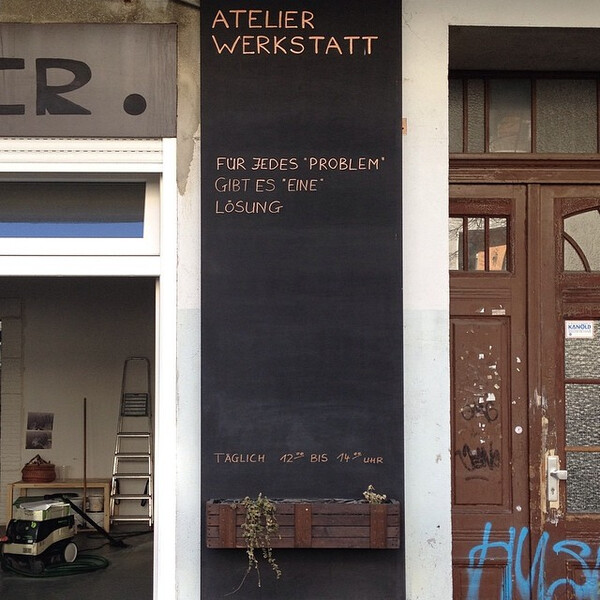 ER.
ATELIER
WERKSTATT
FÜR JEDES "PROBLEM"
GIBT ES "EINE"
LÖSUNG
TÄGLICH 12⁰⁰ BIS 14⁰⁰ UHR
KANOLD